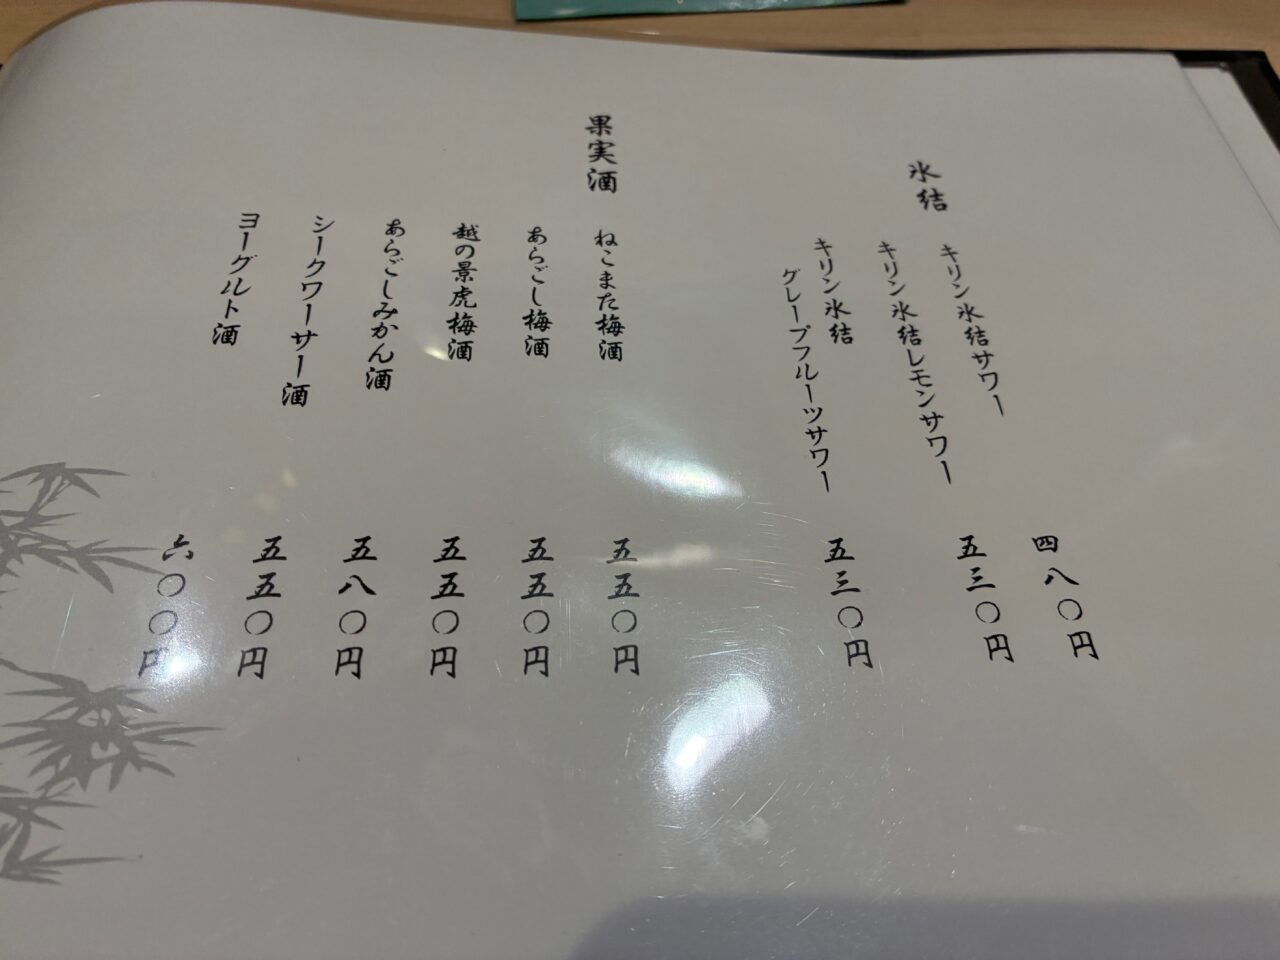 氷結
キリン氷結サワー 四八〇円
キリン氷結レモンサワー 五三〇円
キリン氷結
グレープフルーツサワー 五三〇円
果実酒
ねこまた梅酒 五五〇円
あらごし梅酒 五五〇円
越の景虎梅酒 五五〇円
あらごしみかん酒 五八〇円
シークワーサー酒 五五〇円
ヨーグルト酒 六〇〇円